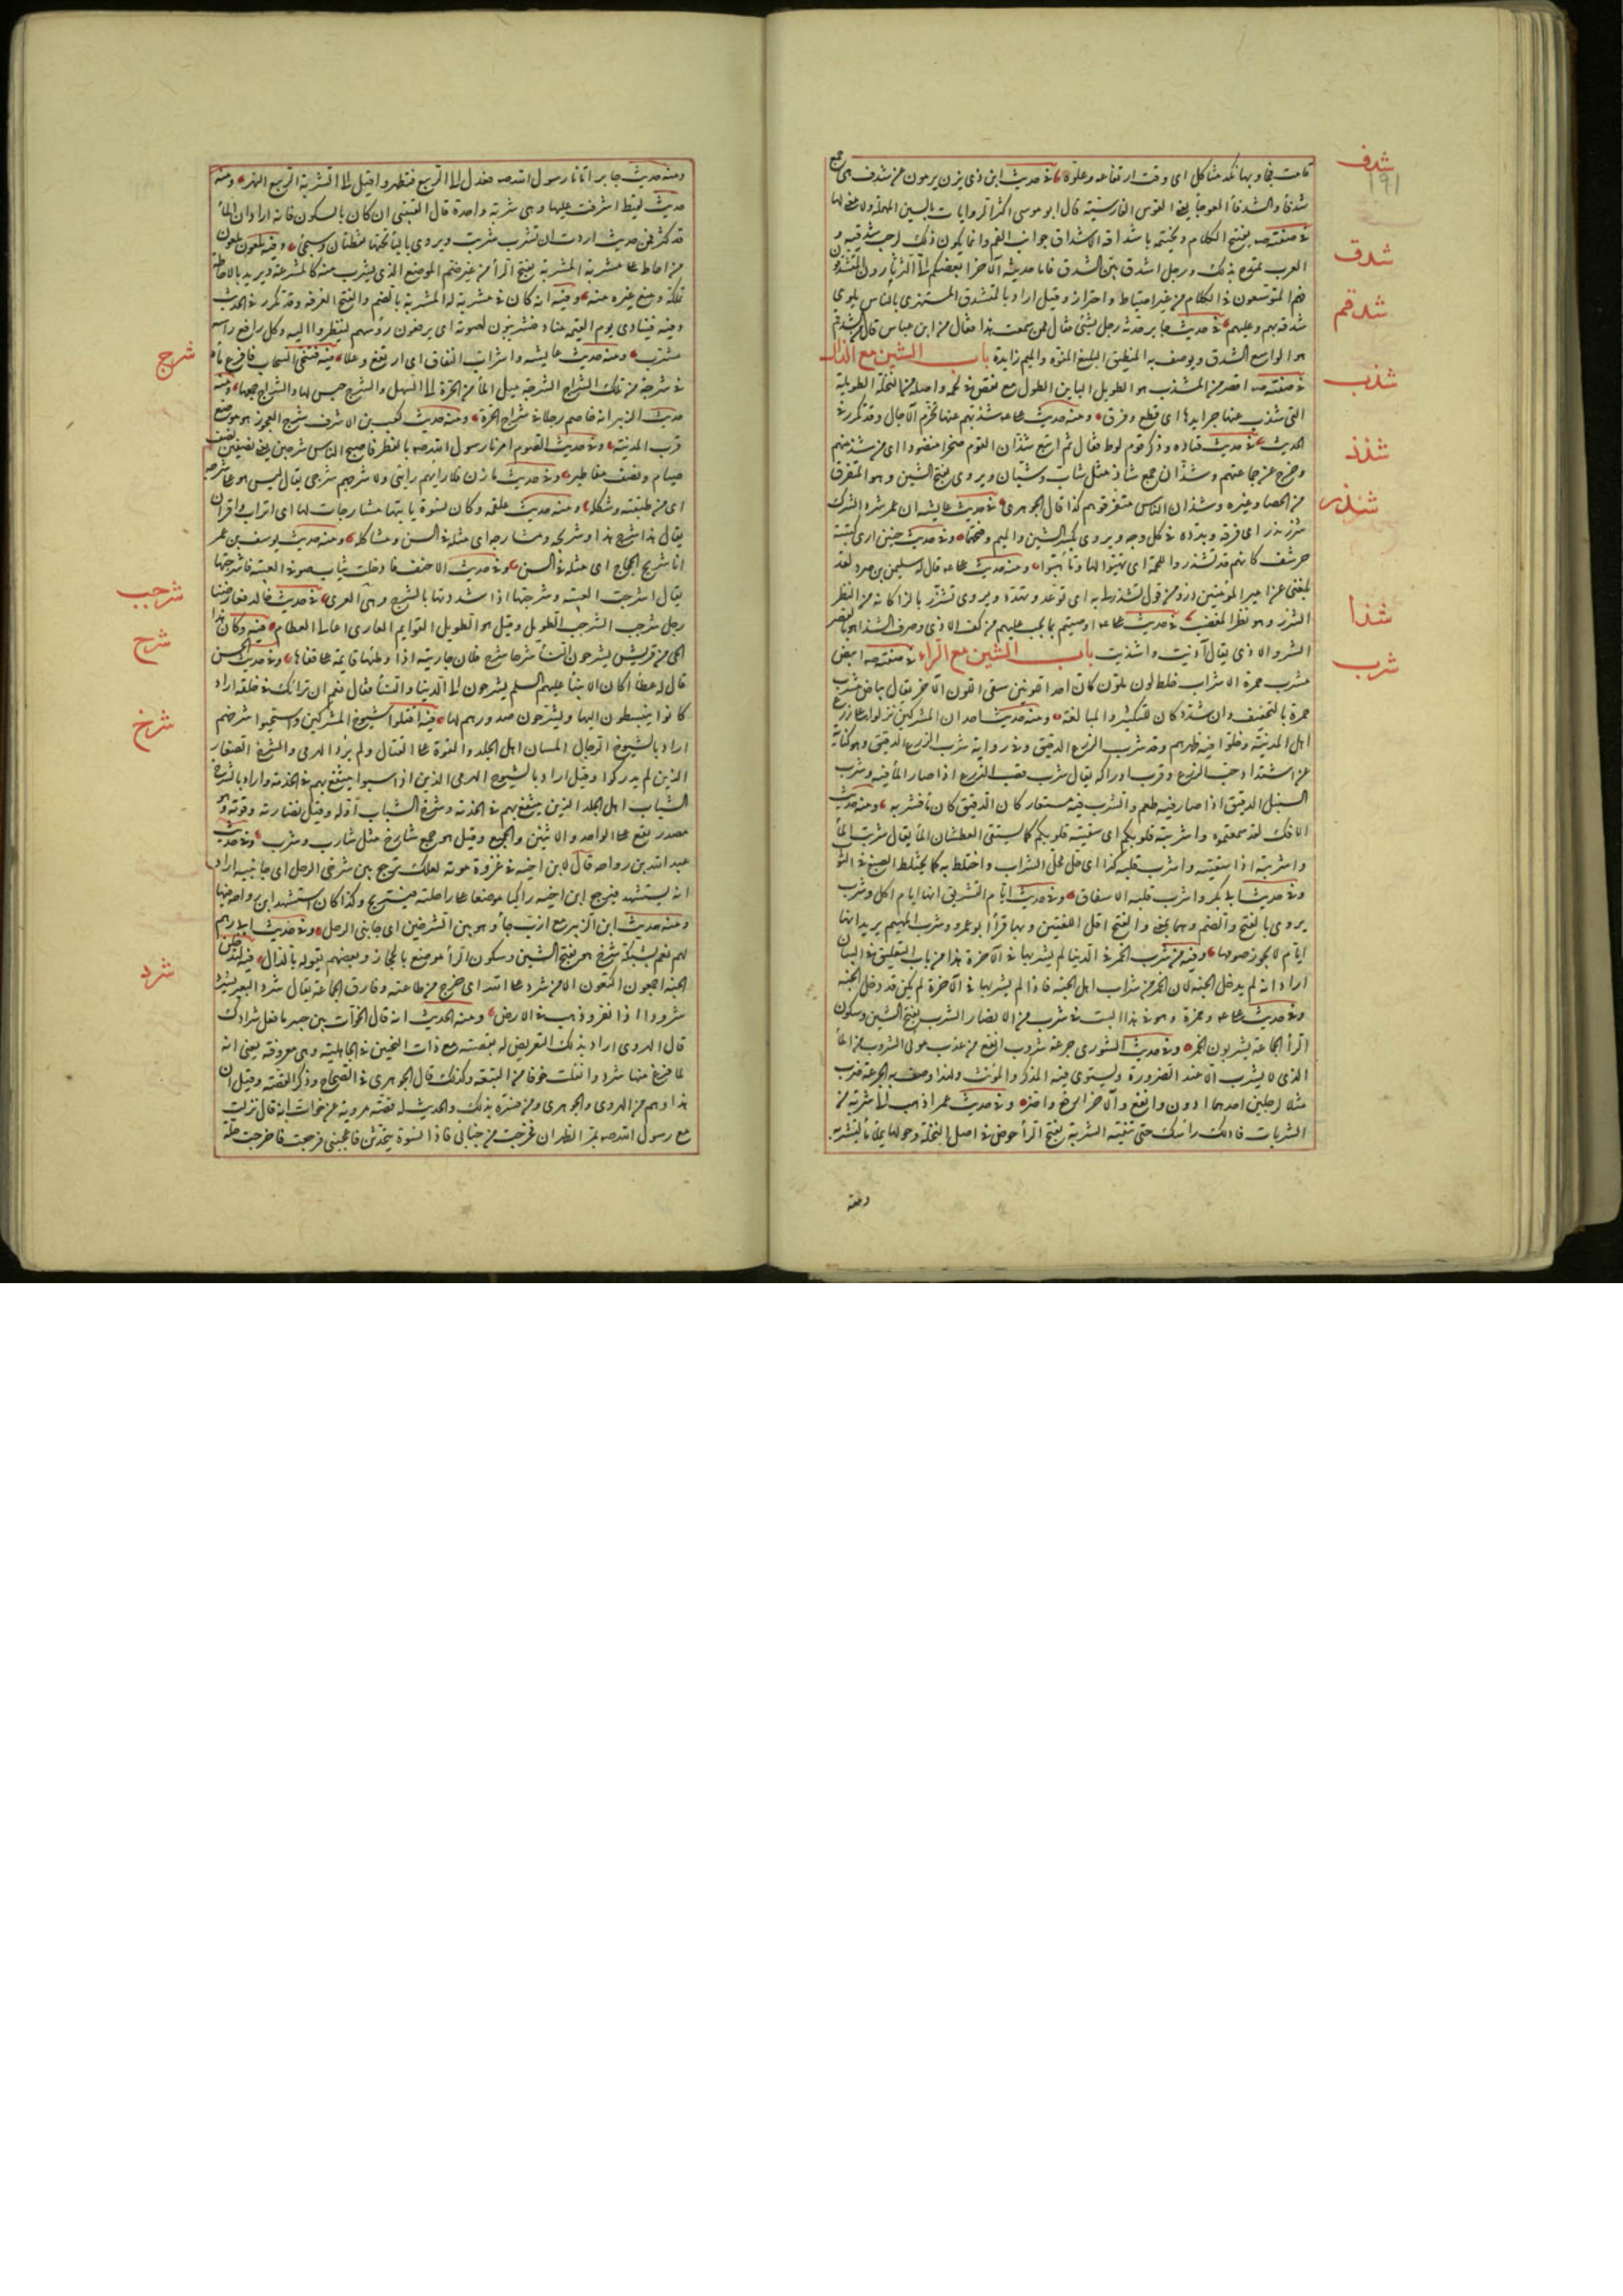 شدف
١٩١
شدق
شدقم
شذب
شذذ
شذر
شذا
شرب
قامت تجاوبها نكد مثاكيل اى وقت ارتفاعه وعلوه وفى حديث ابن ذى يزن يرمون عن شدف هى جمع
شدفأ والشدفأ المعوجأ يعنى القوس الفارسية قال ابو موسى اكثر الروايات بالسين المهملة ولا معنى لها
فى صفته صه يفتتح الكلام ويختمه باشداقه الاشداق جوانب الفم وانما يكون ذلك لرحب شدقيه و
العرب تمتدح بذلك ورجل اشدق بيّن الشدق فاما حديثه الآخر ابغضكم الىّ الثرثارون المتشدقون
فهم المتوسعون فى الكلام من غير احتياط واحتراز وقيل اراد بالمتشدق المستهزى بالناس يلوى
شدقه بهم وعليهم فى حديث جابر حدثه رجل بشئ فقال ممن سمعت هذا فقال من ابن عباس قال من الشدقم
هو الواسع الشدق ويوصف به المنطيق البليغ المفوه والميم زايدة باب الشين مع الذال
فى صفته صه اقصر من المشذب هو الطويل الباين الطول مع نقص فى لحمه واصله من النخلة الطويلة
التى شذب عنها جريدها اى قطع وفرق ومنه حديث على عه شذبهم عنا تخرم الآجال وقد تكرر فى
الحديث فى حديث قتاده وذكر قوم لوط فقال ثم اتبع شذان القوم صخرا منضودا اى من شذ منهم
وخرج عن جماعتهم وشذان جمع شاذ مثل شاب وشبان ويروى بفتح الشين وهو المتفرق
من الحصا وغيره وشذان الناس متفرقوهم كذا قال الجوهرى فى حديث عايشه ان عمر شرد الشرك
شذر مذر اى فرقه وبدده فى كل وجه ويروى بكسر الشين والميم وفتحهما وفى حديث حنين ارى كتيبة
حرشف كانهم قد تشذروا للحملة اى تهيئوا لها وتأهبوا ومنه حديث على عه قال له سليمن بن صرد لقد
بلغنى عن امير المؤمنين ذرو من قول تشذر لى به اى توعد وتهدد ويروى تشزر بالزا كانه من النظر
الشزر وهو نظر المغضب فى حديث على عه اوصيتهم بما يجب عليهم من كف الاذى وصرف الشذا هو بالقصر
الشر والاذى يقال آذيت واشذيت باب الشين مع الراء فى صفته صه ابيض
مشرب حمرة الاشراب خلط لون بلون كان احد اللونين سقى اللون الآخر يقال بياض مشرب
حمرة بالتخفيف وان شدد كان للتكثير والمبالغة ومنه حديث احد ان المشركين نزلوا على زرع
اهل المدينة وخلوا فيه ظهرهم وقد شرب الزرع الدقيق وفى رواية شرب الزرع الدقيق وهو كناية
عن اشتداد حب الزرع وقرب ادراكه يقال شرب قصب الزرع اذا صار المأ فيه وشرب
السنبل الدقيق اذا صار فيه طعم والشرب فيه مستعار كان الدقيق كان مأ فشربه ومنه حديث
الافك لقد سمعتموه واشربته قلوبكم اى سقيته قلوبكم كما يسقى العطشان المأ يقال شربت المأ
واشربته اذا سقيته واشرب قلبه كذا اى حل محل الشراب واختلط به كما يختلط الصبغ فى الثو
وفى حديث ابى بكر واشرب قلبه الاشفاق وفى حديث ايام التشريق انها ايام اكل وشرب
يروى بالفتح والضم وهما بمعنى والفتح اقل اللغتين وبها قرأ ابو عمرو وشرب الهيم يريد انها
ايام لا يجوز صومها وفيه من شرب الخمر فى الدنيا لم يشربها فى الآخرة هذا من باب التعليق فى البيان
اراد انه لم يدخل الجنه لان الخمر من شراب اهل الجنه فاذا لم يشربها فى الآخرة لم يكن قد دخل الجنه
وفى حديث على عه وحمزة وهو فى هذا البيت فى شرب من الانصار الشرب بفتح الشين وسكون
الرأ الجماعة يشربون الخمر وفى حديث الشورى جرعة شروب انفع من عذب موبى الشروب من المأ
الذى لا يشرب الا عند الضرورة ويستوى فيه المذكر والمؤنث ولهذا وصف به الجرعة ضرب
مثلا لرجلين احدهما ادون وانفع والآخر ارفع واضر وفى حديث عمر اذهب الى شربة من
الشربات فادلك راسك حتى تنقيه الشربة بفتح الرأ حوض فى اصل النخلة وحولها يملأ مأ لتشربه
ومنه
شرج
شرجب
شرح
شرخ
شرد
ومنه حديث جابر اتانا رسول الله صه فعدل الى الربيع فتطهر واقبل الى الشربة الربيع النهر ومنه
حديث لقيط اشرفت عليها وهى شربة واحدة قال القتيبى ان كان بالسكون فانه اراد ان المأ
قد كثر فمن حيث اردت ان تشرب شربت ويروى باليأ تحتها نقطتان وسيجئ وفيه ملعون ملعون
من احاط على مشربة المشربة بفتح الرأ من غير ضم الموضع الذى يشرب منه كالمشرعة ويريد بالاحاطة
تملكه ومنع غيره منه وفيه انه كان فى مشربة له المشربة بالضم والفتح الغرفه وقد تكرر فى الحديث
وفيه فينادى يوم القيمه مناد فيشرئبون لصوته اى يرفعون رؤسهم لينظروا اليه وكل رافع راسه
مشرئب ومنه حديث عايشه واشراب النفاق اى ارتفع وعلا فيه فتنحى السحاب فافرغ مأه
فى شرجة من تلك الشراج الشرجة مسيل المأ من الحرة الى السهل والشرج جنس لها والشراج جمعها ومنه
حديث الزبير انه خاصم رجلا فى شراج الحرة ومنه حديث كعب بن الاشرف شرج العجوز هو موضع
قرب المدينه وفى حديث الصوم امرنا رسول الله صه بالفطر فاصبح الناس شرجين يعنى نصفين نصف
صيام ونصف مفاطير وفى حديث مازن فلا رايهم رايى ولا شرجهم شرجى يقال ليس هو على شرجه
اى من طبقته وشكله ومنه حديث علقمه وكان نسوة ياتينها مشارجات لها اى اتراب واقران
يقال هذا شرج هذا وشريجه ومشارجه اى مثله فى السن ومشاكله ومنه حديث يوسف بن عمر
انا شريج الحجاج اى مثله فى السن وفى حديث الاحنف فادخلت ثياب صونى العيبه فاشرجتها
يقال اشرجت العيبه وشرجتها اذا شددتها بالشرج وهى العرى فى حديث خالد فعارضنا
رجل شرجب الشرجب الطويل وقيل هو الطويل القوايم العارى اعالى العظام فيه وكان هذا
الحى من قريش يشرحون النسأ شرحا شرح فلان جاريته اذا وطئها قايمة على قفاها وفى حديث الحسن
قال له عطأ اكان الانبيأ عليهم السلم يشرحون الى الدنيا والنسأ فقال نعم ان لله ترائك فى خلقه اراد
كانوا ينبسطون اليها ويشرحون صدورهم لها فيه اقتلوا شيوخ المشركين واستحيوا شرخهم
اراد بالشيوخ الرجال المسان اهل الجلد والقوة على القتال ولم يرد الهرمى والشرخ الصغار
الذين لم يدركوا وقيل اراد بالشيوخ الهرمى الذين اذا سبوا لم ينتفع بهم فى الخدمة واراد بالشرخ
الشباب اهل الجلد الذين ينتفع بهم فى الخدمة وشرخ الشباب اوله وقيل نضارته وقوته وهو
مصدر يقع على الواحد والاثنين والجميع وقيل هو جمع شارخ مثل شارب وشرب وفى حديث
عبد الله بن رواحه قال لابن اخيه فى غزوة موته لعلك ترجع بين شرخى الرحل اى جانبيه اراد
انه يستشهد فيرجع ابن اخيه راكبا موضعه على راحلته فيستريح وكذا كان استشهد ابن رواحه فيها
ومنه حديث ابن الزبير مع ازب جأ وهو بين الشرخين اى جانبى الرحل وفى حديث ابى رهم
لهم نعم بشبكة شرخ هو بفتح الشين وسكون الرأ موضع بالحجاز وبعضهم يقوله بالدال فيه لتدخلن
الجنه اجمعون اكتعون الا من شرد على الله اى خرج من طاعته وفارق الجماعة يقال شرد البعير يشرد
شرودا اذا نفر وذهب فى الارض ومنه الحديث انه قال لخوات بن جبير ما فعل شرادك
قال الهروى اراد بذلك التعريض له بقصته مع ذات النحيين فى الجاهلية وهى معروفه يعنى انه
لما فرغ منها شرد وانفلت خوفا من التبعه وكذلك قال الجوهرى فى الصحاح وذكر القصه وقيل ان
هذا وهم من الهروى والجوهرى ومن فسره بذلك والحديث له قصه مروية عن خوات انه قال نزلت
مع رسول الله صه بمر الظهران فخرجت من خبائى فاذا نسوة يتحدثن فاعجبننى فرجعت فاخرجت حلة